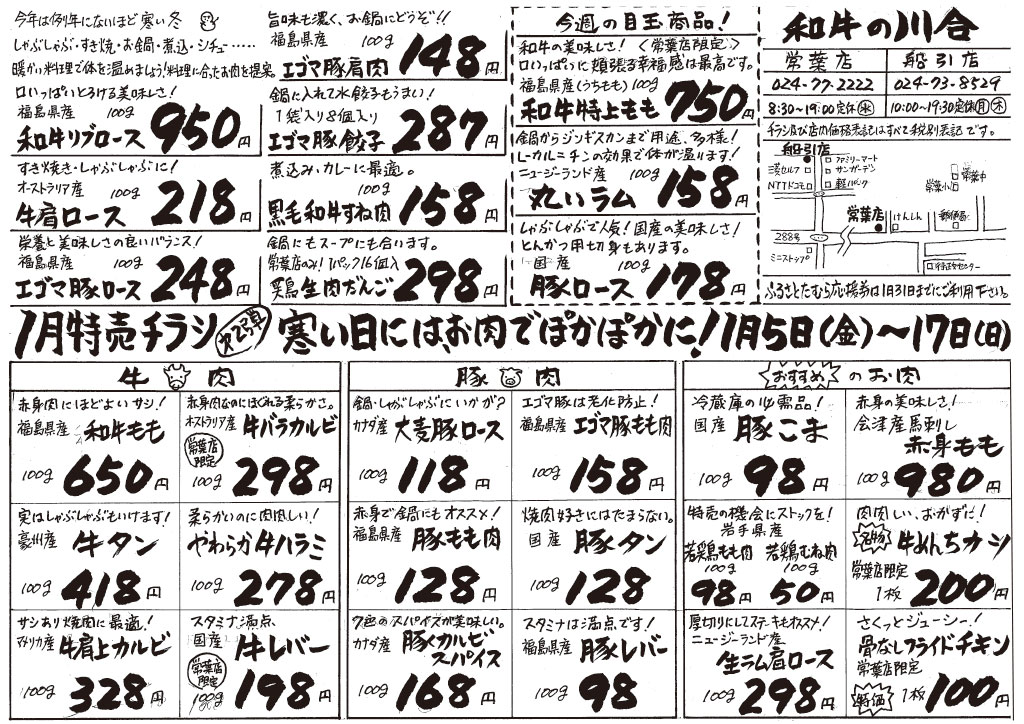 今年は例年にないほど寒い冬
しゃぶしゃぶ・すき焼・お鍋・煮込・シチュー……
暖かい料理で体を温めましょう!料理に合ったお肉を提案。
口いっぱいとろける美味しさ!
福島県産 100g
和牛リブロース 950円
すき焼き・しゃぶしゃぶに!
オーストラリア産 100g
牛肩ロース 218円
栄養と美味しさの良いバランス!
福島県産 100g
エゴマ豚ロース 248円
旨味も濃く、お鍋にどうぞ!!
福島県産 100g
エゴマ豚肩肉 148円
鍋に入れて水餃子もうまい!
1袋入り8個入り
エゴマ豚餃子 287円
煮込み・カレーに最適。
100g
黒毛和牛すね肉 158円
鍋にもスープにも合います。
常葉店のみ!1パック16個入
生肉だんご 298円
今週の目玉商品!
和牛の美味しさ!〈常葉店限定〉
口いっぱいに頬張る幸福感は最高です。
福島県産(うちもも)100g
和牛特上もも 750円
鍋からジンギスカンまで用途、多様!
L-カルニチンの効果で体が温ります!
ニュージーランド産 100g
丸いラム 158円
しゃぶしゃぶで人気!国産の美味しさ!
とんかつ用切身もあります。
国産 100g
豚ロース 178円
和牛の川合
常葉店 船引店
024-77-2222 024-73-8529
8:30〜19:00定休㊌ 10:00〜19:30定休㊊㊍
チラシ及び店内価格表記はすべて税別表記です。
船引店
ファミリーマート
三菱セルフ サンガーデン
NTTドコモ 軽パーク
常葉中
常葉小
常葉店 けんしん 郵便局
288号
ミニストップ
行政センター
ふるさとたむら応援券は1月31日までにご利用下さい。
1月特売チラシ 第2弾 寒い日にはお肉でぽかぽかに!1月5日(金)〜17日(日)
牛肉
赤身肉にほどよいサシ!
福島県産 和牛もも
100g 650円
赤身肉なのにほぐれる柔らかさ。
オーストラリア産 牛バラカルビ
常葉店限定
100g 298円
実はしゃぶしゃぶもいけます!
豪州産 牛タン
100g 418円
柔らかいのに肉肉しい!
やわらか牛ハラミ
100g 278円
サシあり焼肉に最適!
アメリカ産 牛肩上カルビ
100g 328円
スタミナ満点、
国産 牛レバー
常葉店限定
100g 198円
豚肉
鍋・しゃぶしゃぶにいかが?
カナダ産 大麦豚ロース
100g 118円
エゴマ豚は老化防止!
福島県産 エゴマ豚もも肉
100g 158円
赤身で鍋にもオススメ!
福島県産 豚もも肉
100g 128円
焼肉好きにはたまらない。
国産 豚タン
100g 128円
7色のスパイスが美味しい。
カナダ産 豚カルビスパイス
100g 168円
スタミナは満点です!
福島県産 豚レバー
100g 98円
おすすめのお肉
冷蔵庫の必需品!
国産 豚こま
100g 98円
赤身の美味しさ!
会津産馬刺し
赤身もも
100g 980円
特売の機会にストックを!
岩手県産
若鶏もも肉 若鶏むね肉
100g 100g
98円 50円
肉肉しい、おかずに!
名物 牛めんちカツ
常葉店限定
1枚 200円
厚切りにしてステーキもオススメ!
ニュージーランド産
生ラム肩ロース
100g 298円
さくっとジューシー!
骨なしフライドチキン
常葉店限定
特価 1枚 100円